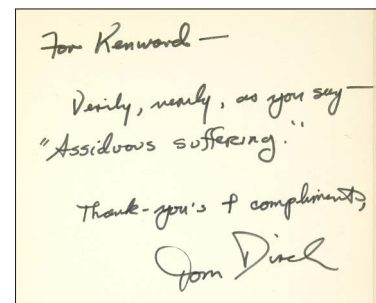 For Kenward —
Verily, verily, as you say —
"Assiduous suffering."
Thank-you's & compliments,
Tom